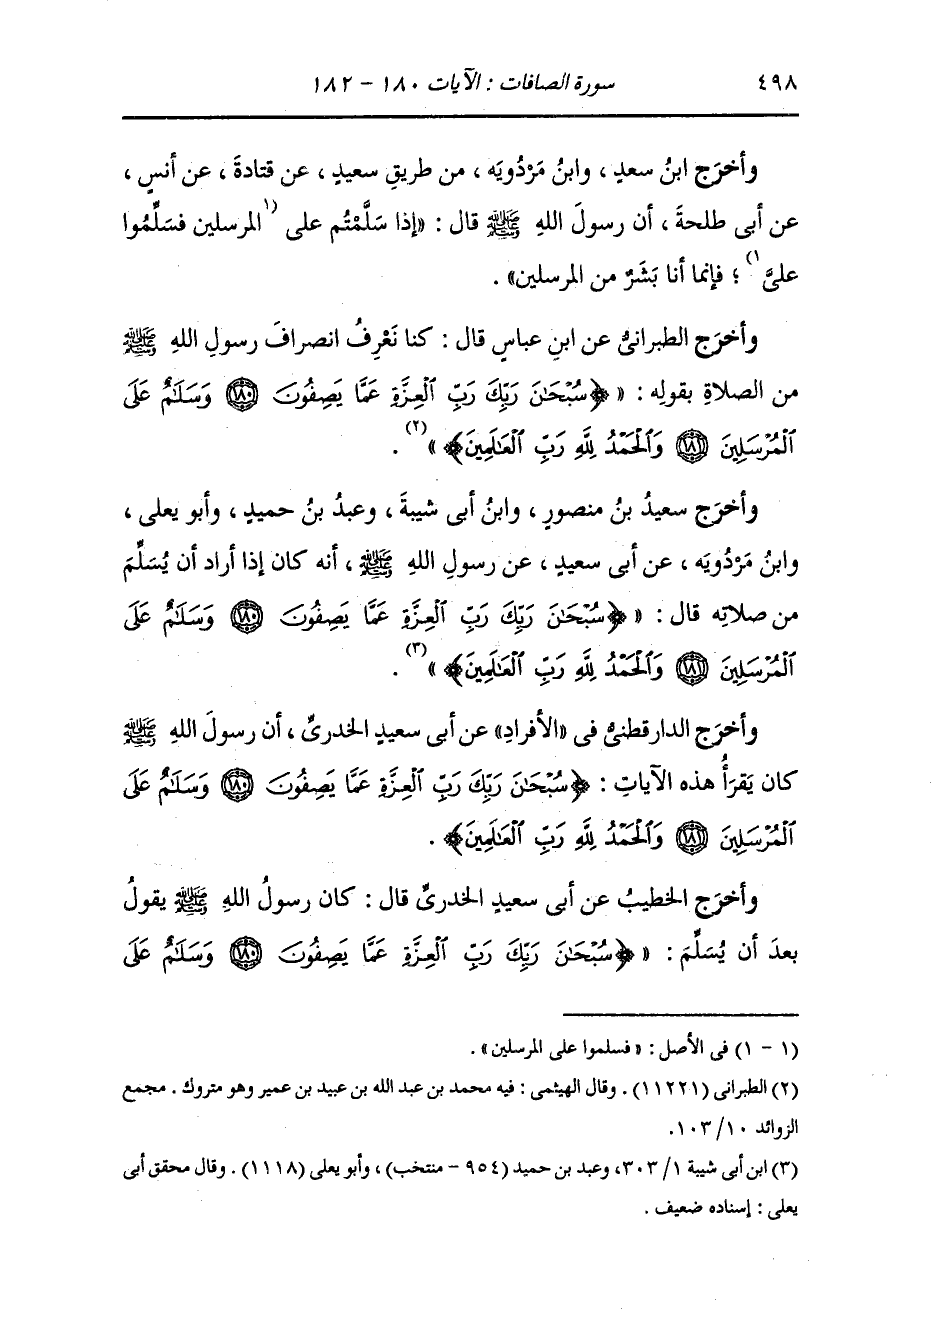 ٤٩٨ سورة الصافات : الآيات ١٨٠ - ١٨٢
وأخرَج ابنُ سعدٍ ، وابنُ مَرْدُويَه ، من طريقِ سعيدٍ ، عن قتادةَ ، عن أنسٍ ،
عن أبى طلحةَ ، أن رسولَ اللهِ ﷺ قال : «إذا سَلَّمْتُم على (١المرسلين فسَلِّمُوا
علىَّ١) ؛ فإنما أنا بَشَرٌ من المرسلين» .
وأخرَج الطبرانىُّ عن ابنِ عباسٍ قال : كنا نَعْرِفُ انصرافَ رسولِ اللهِ ﷺ
من الصلاةِ بقولِه : « ﴿سُبْحَٰنَ رَبِّكَ رَبِّ ٱلْعِزَّةِ عَمَّا يَصِفُونَ ١٨٠ وَسَلَٰمٌ عَلَى
ٱلْمُرْسَلِينَ ١٨١ وَٱلْحَمْدُ لِلَّهِ رَبِّ ٱلْعَٰلَمِينَ﴾ »(٢) .
وأخرَج سعيدُ بنُ منصورٍ ، وابنُ أبى شيبةَ ، وعبدُ بنُ حميدٍ ، وأبو يعلى ،
وابنُ مَرْدُويَه ، عن أبى سعيدٍ ، عن رسولِ اللهِ ﷺ ، أنه كان إذا أراد أن يُسَلِّمَ
من صلاتِه قال : « ﴿سُبْحَٰنَ رَبِّكَ رَبِّ ٱلْعِزَّةِ عَمَّا يَصِفُونَ ١٨٠ وَسَلَٰمٌ عَلَى
ٱلْمُرْسَلِينَ ١٨١ وَٱلْحَمْدُ لِلَّهِ رَبِّ ٱلْعَٰلَمِينَ﴾ »(٣) .
وأخرَج الدارقطنىُّ فى «الأفرادِ» عن أبى سعيدٍ الخدرىِّ ، أن رسولَ اللهِ ﷺ
كان يَقرَأُ هذه الآياتِ : ﴿سُبْحَٰنَ رَبِّكَ رَبِّ ٱلْعِزَّةِ عَمَّا يَصِفُونَ ١٨٠ وَسَلَٰمٌ عَلَى
ٱلْمُرْسَلِينَ ١٨١ وَٱلْحَمْدُ لِلَّهِ رَبِّ ٱلْعَٰلَمِينَ﴾ .
وأخرَج الخطيبُ عن أبى سعيدٍ الخدرىِّ قال : كان رسولُ اللهِ ﷺ يقولُ
بعدَ أن يُسَلِّمَ : « ﴿سُبْحَٰنَ رَبِّكَ رَبِّ ٱلْعِزَّةِ عَمَّا يَصِفُونَ ١٨٠ وَسَلَٰمٌ عَلَى
(١ - ١) فى الأصل : «فسلموا على المرسلين» .
(٢) الطبرانى (١١٢٢١) . وقال الهيثمى : فيه محمد بن عبد الله بن عبيد بن عمير وهو متروك . مجمع
الزوائد ١٠/ ١٠٣.
(٣) ابن أبى شيبة ١/ ٣٠٣، وعبد بن حميد (٩٥٤ - منتخب) ، وأبو يعلى (١١١٨) . وقال محقق أبى
يعلى : إسناده ضعيف .